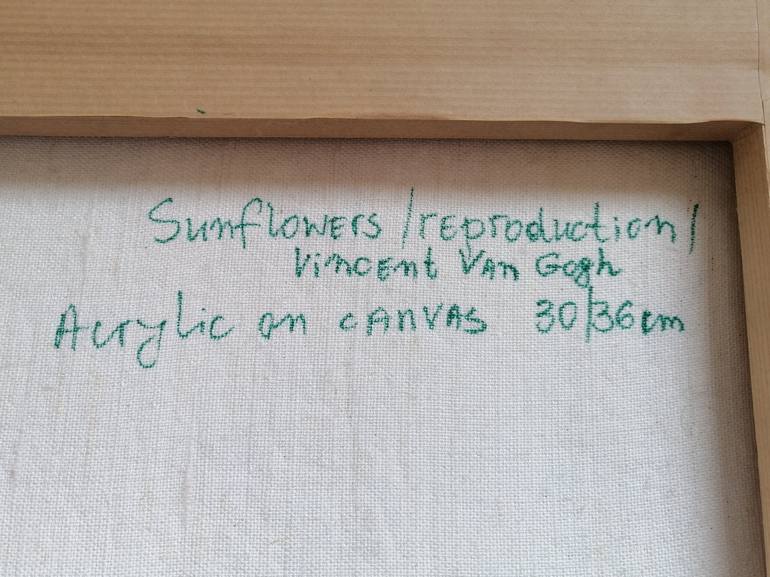 Sunflowers /reproduction/
Vincent Van Gogh
Acrylic on canvas 30/36cm